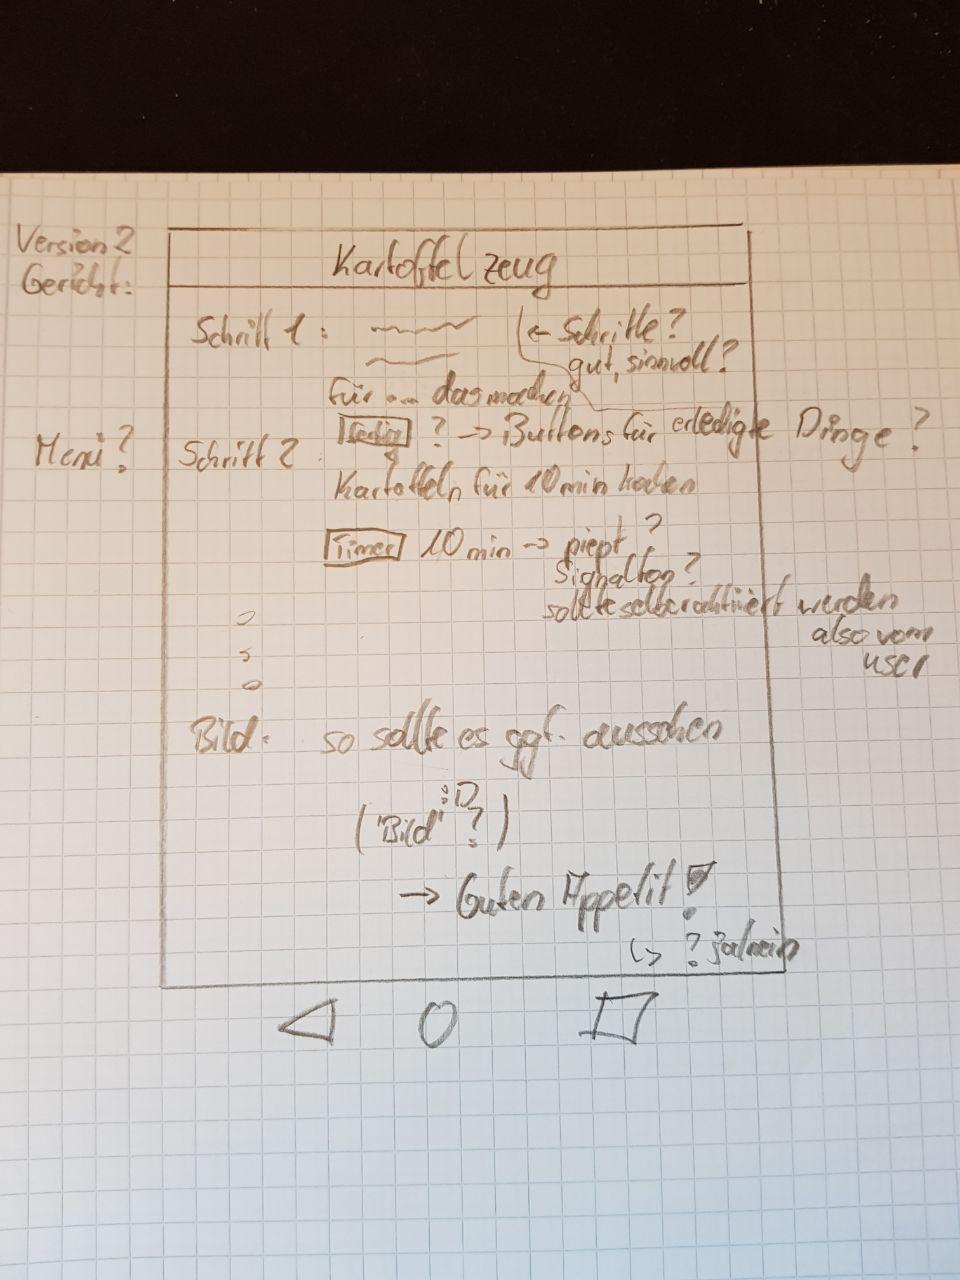 Version 2
Gericht:
Kartoffelzeug
Schritt 1:
← Schritte?
gut, sinnvoll?
für ... das machen
Fertig ? → Buttons für erledigte Dinge?
Menü?
Schritt 2
Kartoffeln für 10 min kochen
Timer 10 min → piept?
Signalton?
sollte selber aktiviert werden
also vom
user
Bild: so sollte es ggf. aussehen
:D
("Bild"?)
→ Guten Appetit!
↳ ? ja/nein